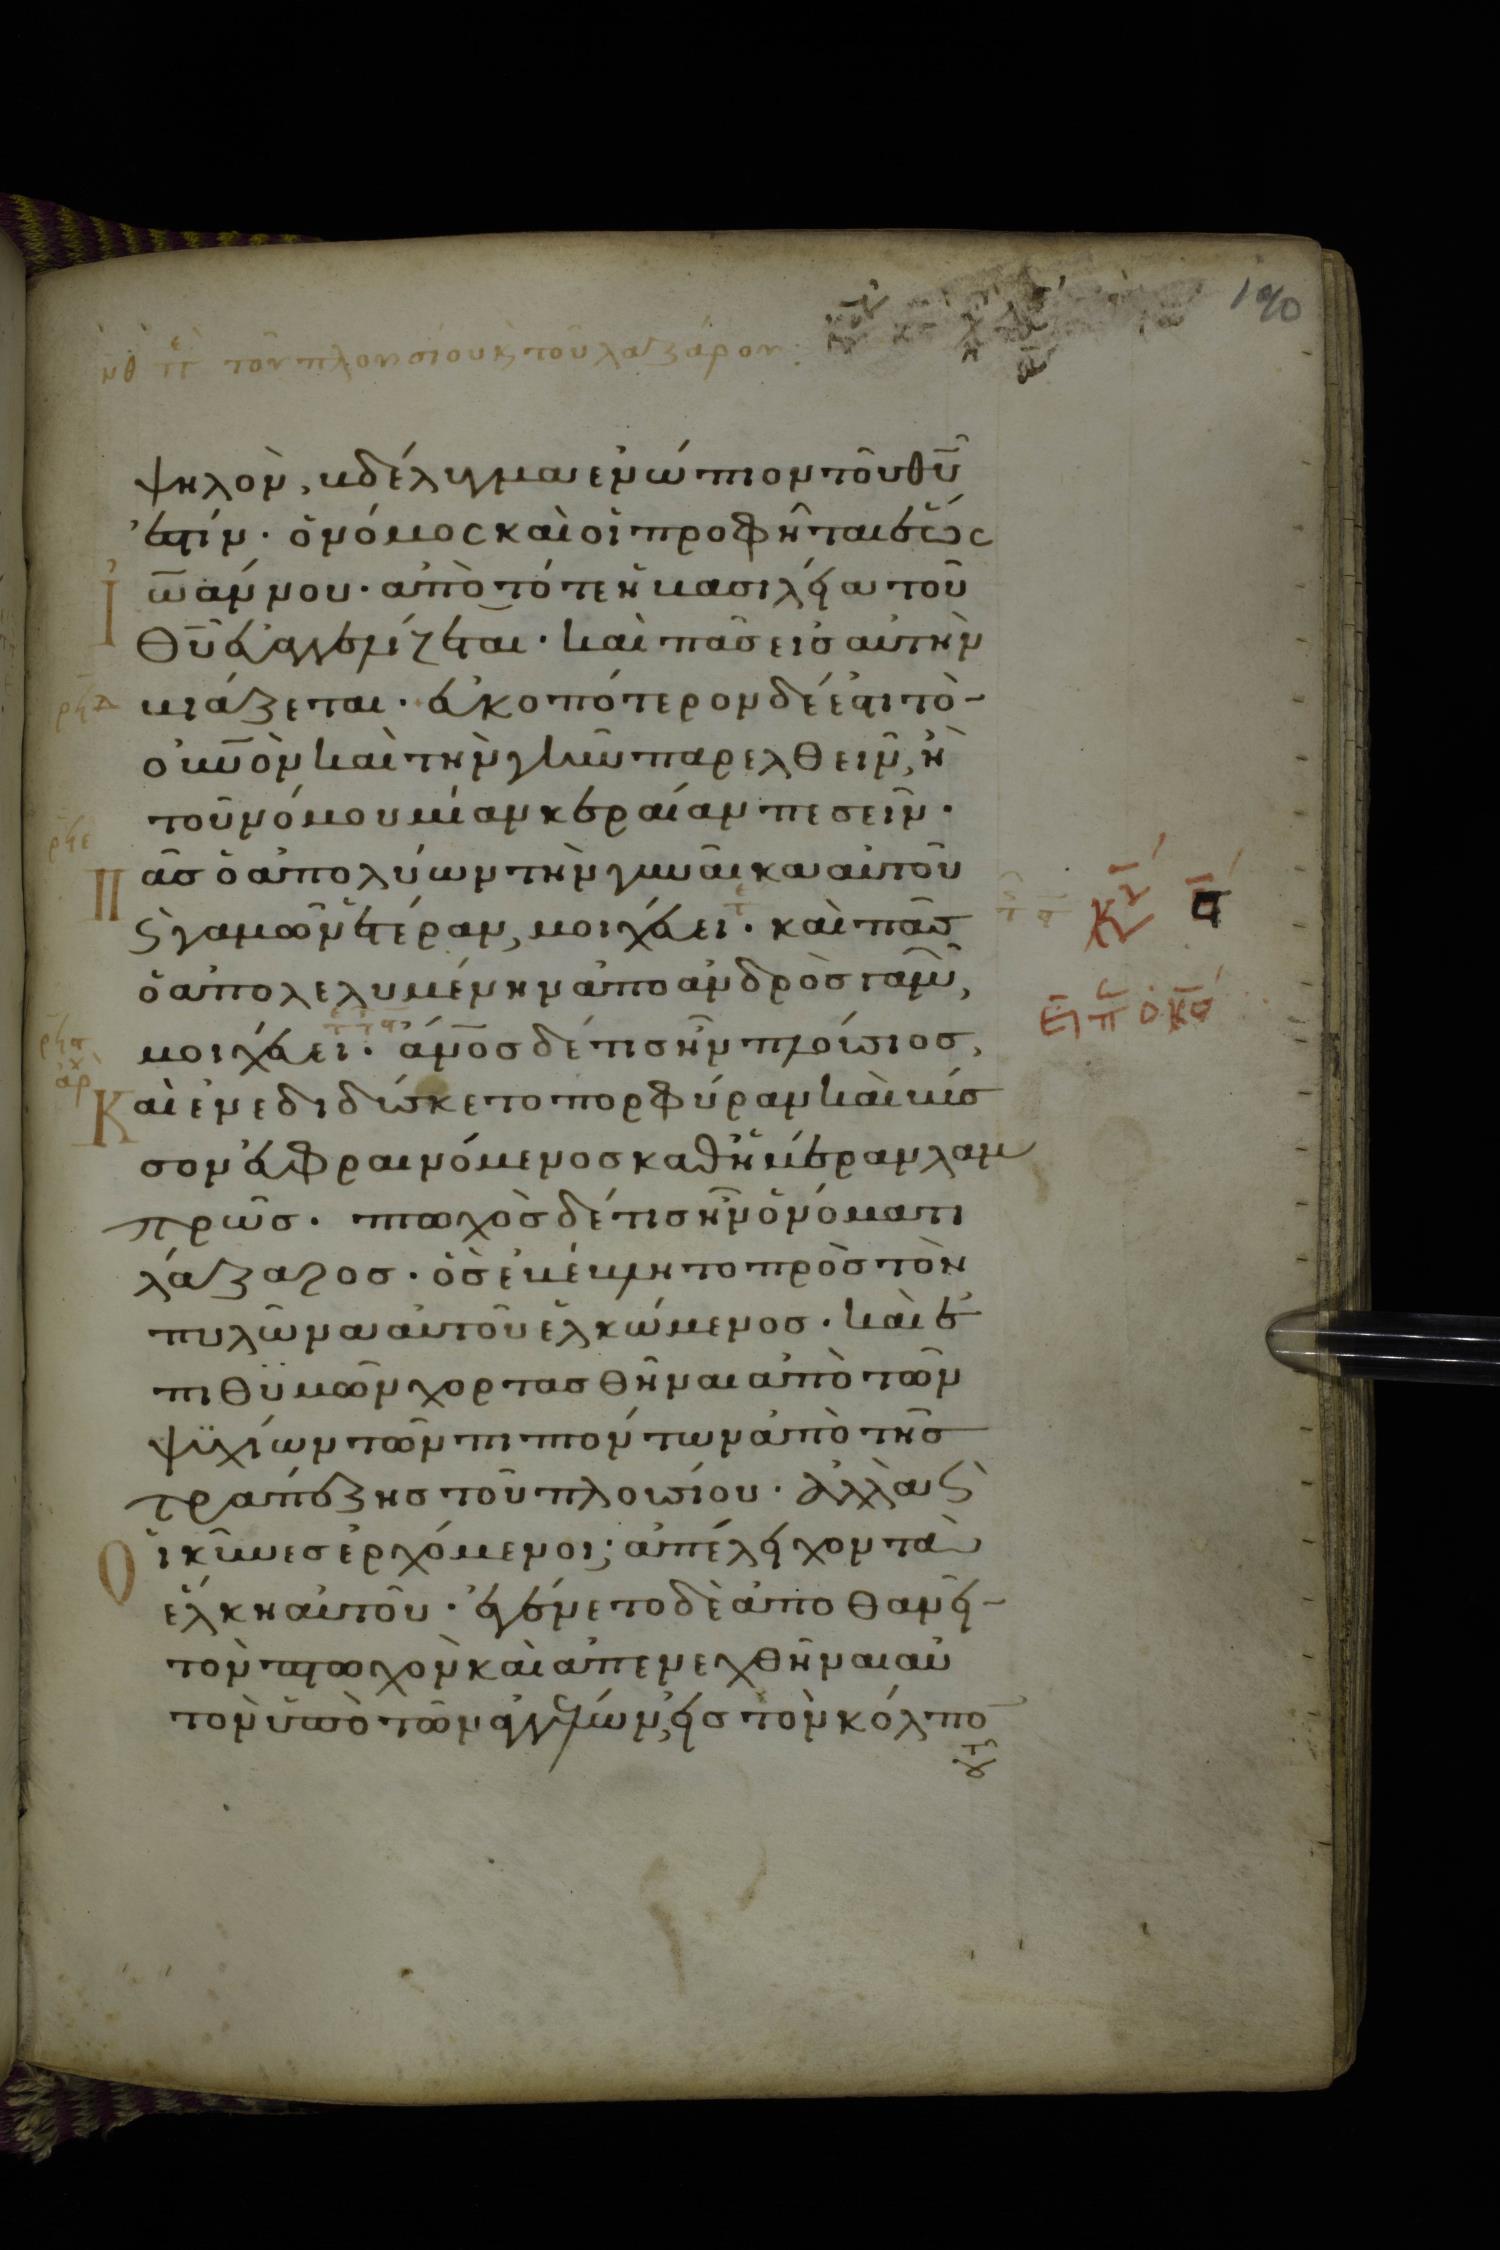 νθ πε τοῦ πλουσίου κ τοῦ λαζάρου
190
ψηλὸν, βδέλυγμα ἐνώπιον τοῦ θῡ
ἐστίν · ὁ νόμος καὶ οἱ προφῆται ἕως
Ἰω̅άννου · ἀπὸ τότε ἡ βασιλεία τοῦ
θῡ εὐαγγελίζεται · καὶ πᾶς εἰς αὐτὴν
βιάζεται · εὐκοπώτερον δέ ἐστι τὸν
οὐν̅ὸν καὶ τὴν γῆν παρελθεῖν, ἢ
τοῦ νόμου μίαν κεραίαν πεσεῖν ·
Πᾶς ὁ ἀπολύων τὴν γυναῖκα αὐτοῦ
ϗ γαμῶν ἑτέραν, μοιχεύει · καὶ πᾶς
ὁ ἀπολελυμένην ἀπὸ ἀνδρὸς γαμῶν,
μοιχεύει · ἄν̅ος δέ τις ἦν πλούσιος,
Καὶ ἐνεδιδύσκετο πορφύραν καὶ βύσ
σον εὐφραινόμενος καθ' ἡμέραν λαμ
πρῶς · πτωχὸς δέ τις ἦν ὀνόματι
λάζαρος · ὃς ἐβέβλητο πρὸς τὸν
πυλῶνα αὐτοῦ ἑλκώμενος · καὶ ἐ
πιθϋμῶν χορτασθῆναι ἀπὸ τῶν
ψϊχίων τῶν πιπτόντων ἀπὸ τῆς
τραπέζης τοῦ πλουσίου · ἀλλὰ ϗ
Οἱ κύνες ἐρχόμενοι · ἀπέλειχον τὰ
ἕλκη αὐτοῦ · ἐγένετο δὲ ἀποθανεῖν
τὸν πτωχὸν καὶ ἀπενεχθῆναι αὐ
τὸν ὑπὸ τῶν ἀγγέλων, εἰς τὸν κόλπον